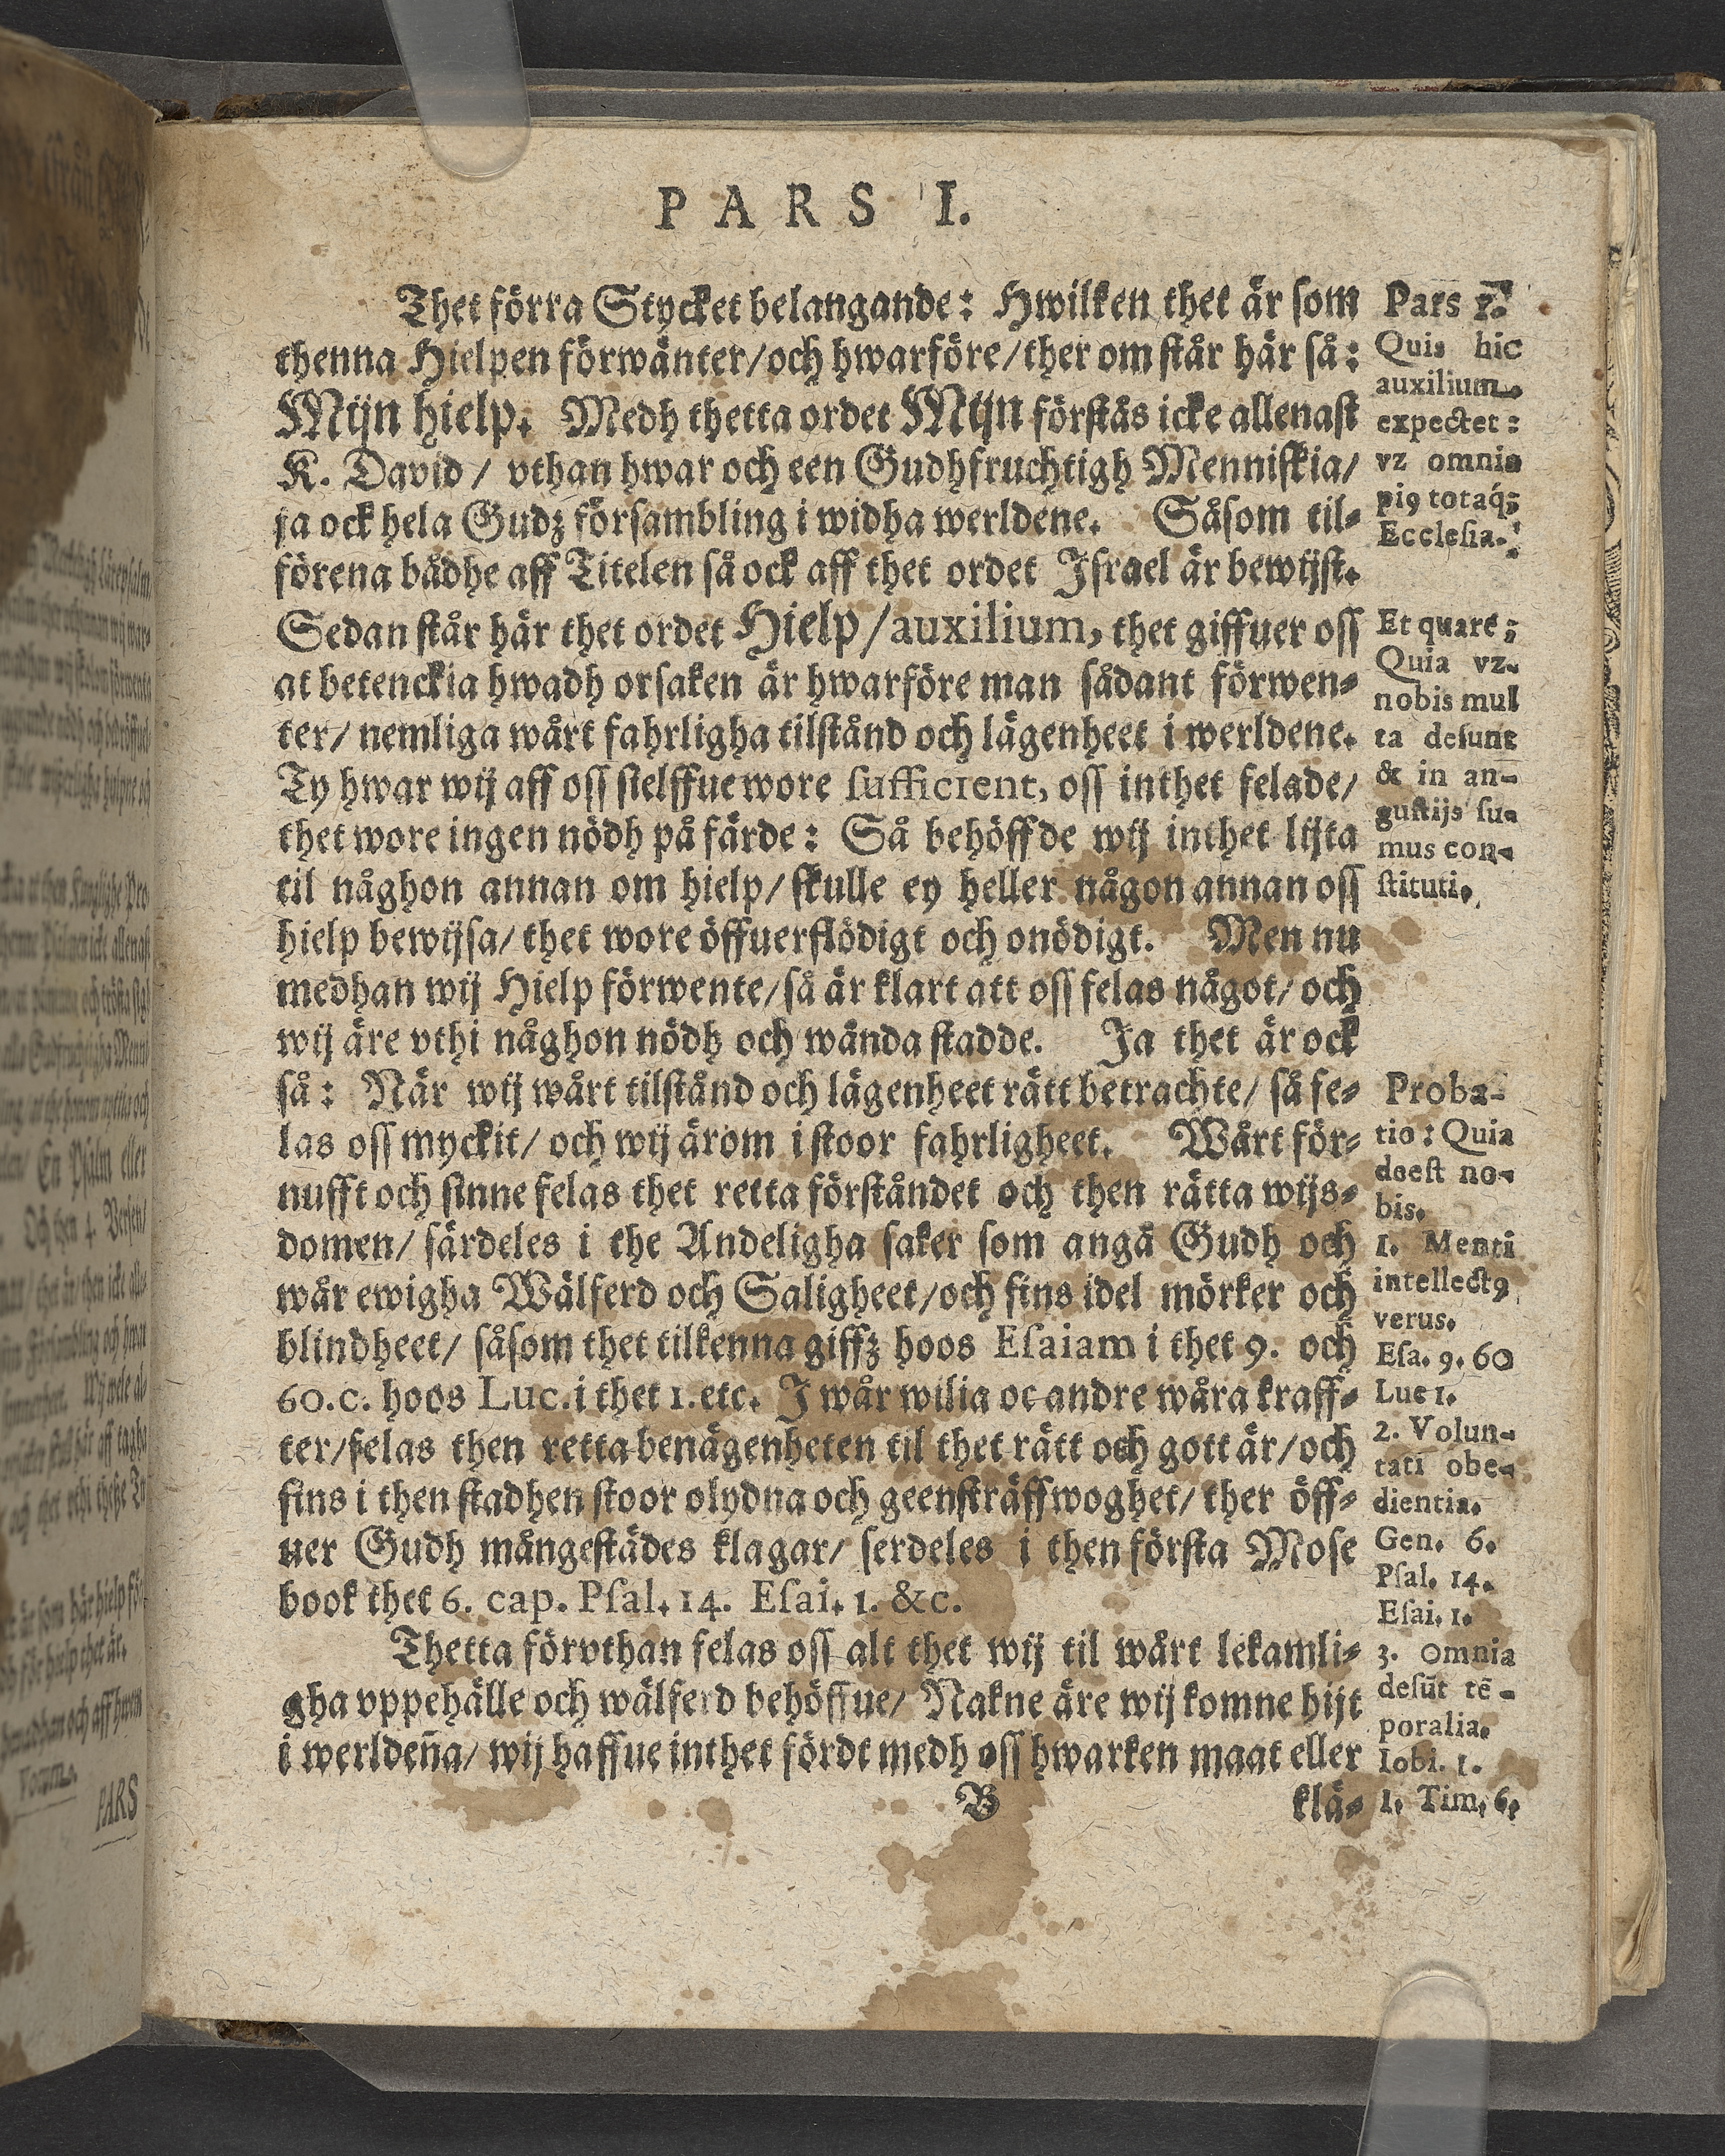 PARS I.
Thet förra Stycket belangande: Hwilken thet är som
thenna Hielpen förwänter/och hwarföre/ther om står här så:
Mijn hielp. Medh thetta ordet Mijn förstås icke allenast
K. David/ vthan hwar och een Gudhfruchtigh Menniskia/
ja ock hela Gudz försambling i widha werldene. Såsom til-
förena bådhe aff Titelen så ock aff thet ordet Israel är bewijst.
Sedan står här thet ordet Hielp/auxilium, thet giffuer oss
at betenckia hwadh orsaken är hwarföre man sådant förwen-
ter/ nemliga wårt fahrligha tilstånd och lägenheet i werldene.
Ty hwar wij aff oss sielffue wore sufficient, oss inthet felade/
thet wore ingen nödh på färde: Så behöffde wij inthet lijta
til någhon annan om hielp/ skulle ey heller någon annan oss
hielp bewijsa/ thet wore öffuerflödigt och onödigt. Men nu
medhan wij Hielp förwente/så är klart att oss felas något/ och
wij äre vthi någhon nödh och wånda stadde. Ja thet är ock
så: När wij wårt tilstånd och lägenheet rätt betrachte/ så fe-
las oss myckit/ och wij ärom i stoor fahrligheet. Wårt för-
nufft och sinne felas thet retta förståndet och then rätta wijs-
domen/ särdeles i the Andeligha saker som angå Gudh och
wår ewigha Wälferd och Saligheet/och fins idel mörker och
blindheet/ såsom thet tilkenna giffz hoos Esaiam i thet 9. och
60.c. hoos Luc.i thet 1.etc. J wår wilia oc andre wåra kraff-
ter/felas then retta benägenheten til thet rätt och gott är/och
fins i then stadhen stoor olydna och geensträffwoghet/ ther öff-
uer Gudh mångestädes klagar/ serdeles i then första Mose
book thet 6. cap. Psal. 14. Esai. 1. &c.
Thetta förvthan felas oss alt thet wij til wårt lekamli-
gha vppehälle och wälferd behöffue/ Nakne äre wij komne hijt
i werldeña/ wij haffue inthet fördt medh oss hwarken maat eller
B klä-
Pars 1.
Quis hic
auxilium
expectet:
vz omnis
pi9 totaq́;
Ecclesia.
Et quare;
Quia vz.
nobis mul
ta desunt
& in an-
gustijs su-
mus con-
stituti.
Proba-
tio: Quia
deest no-
bis.
1. Menti
intellect9
verus.
Esa. 9. 60
Luc 1.
2. Volun-
tati obe-
dientia.
Gen. 6.
Psal. 14.
Esai. 1.
3. Omnia
desūt tē-
poralia.
Iobi. 1.
1. Tim. 6.